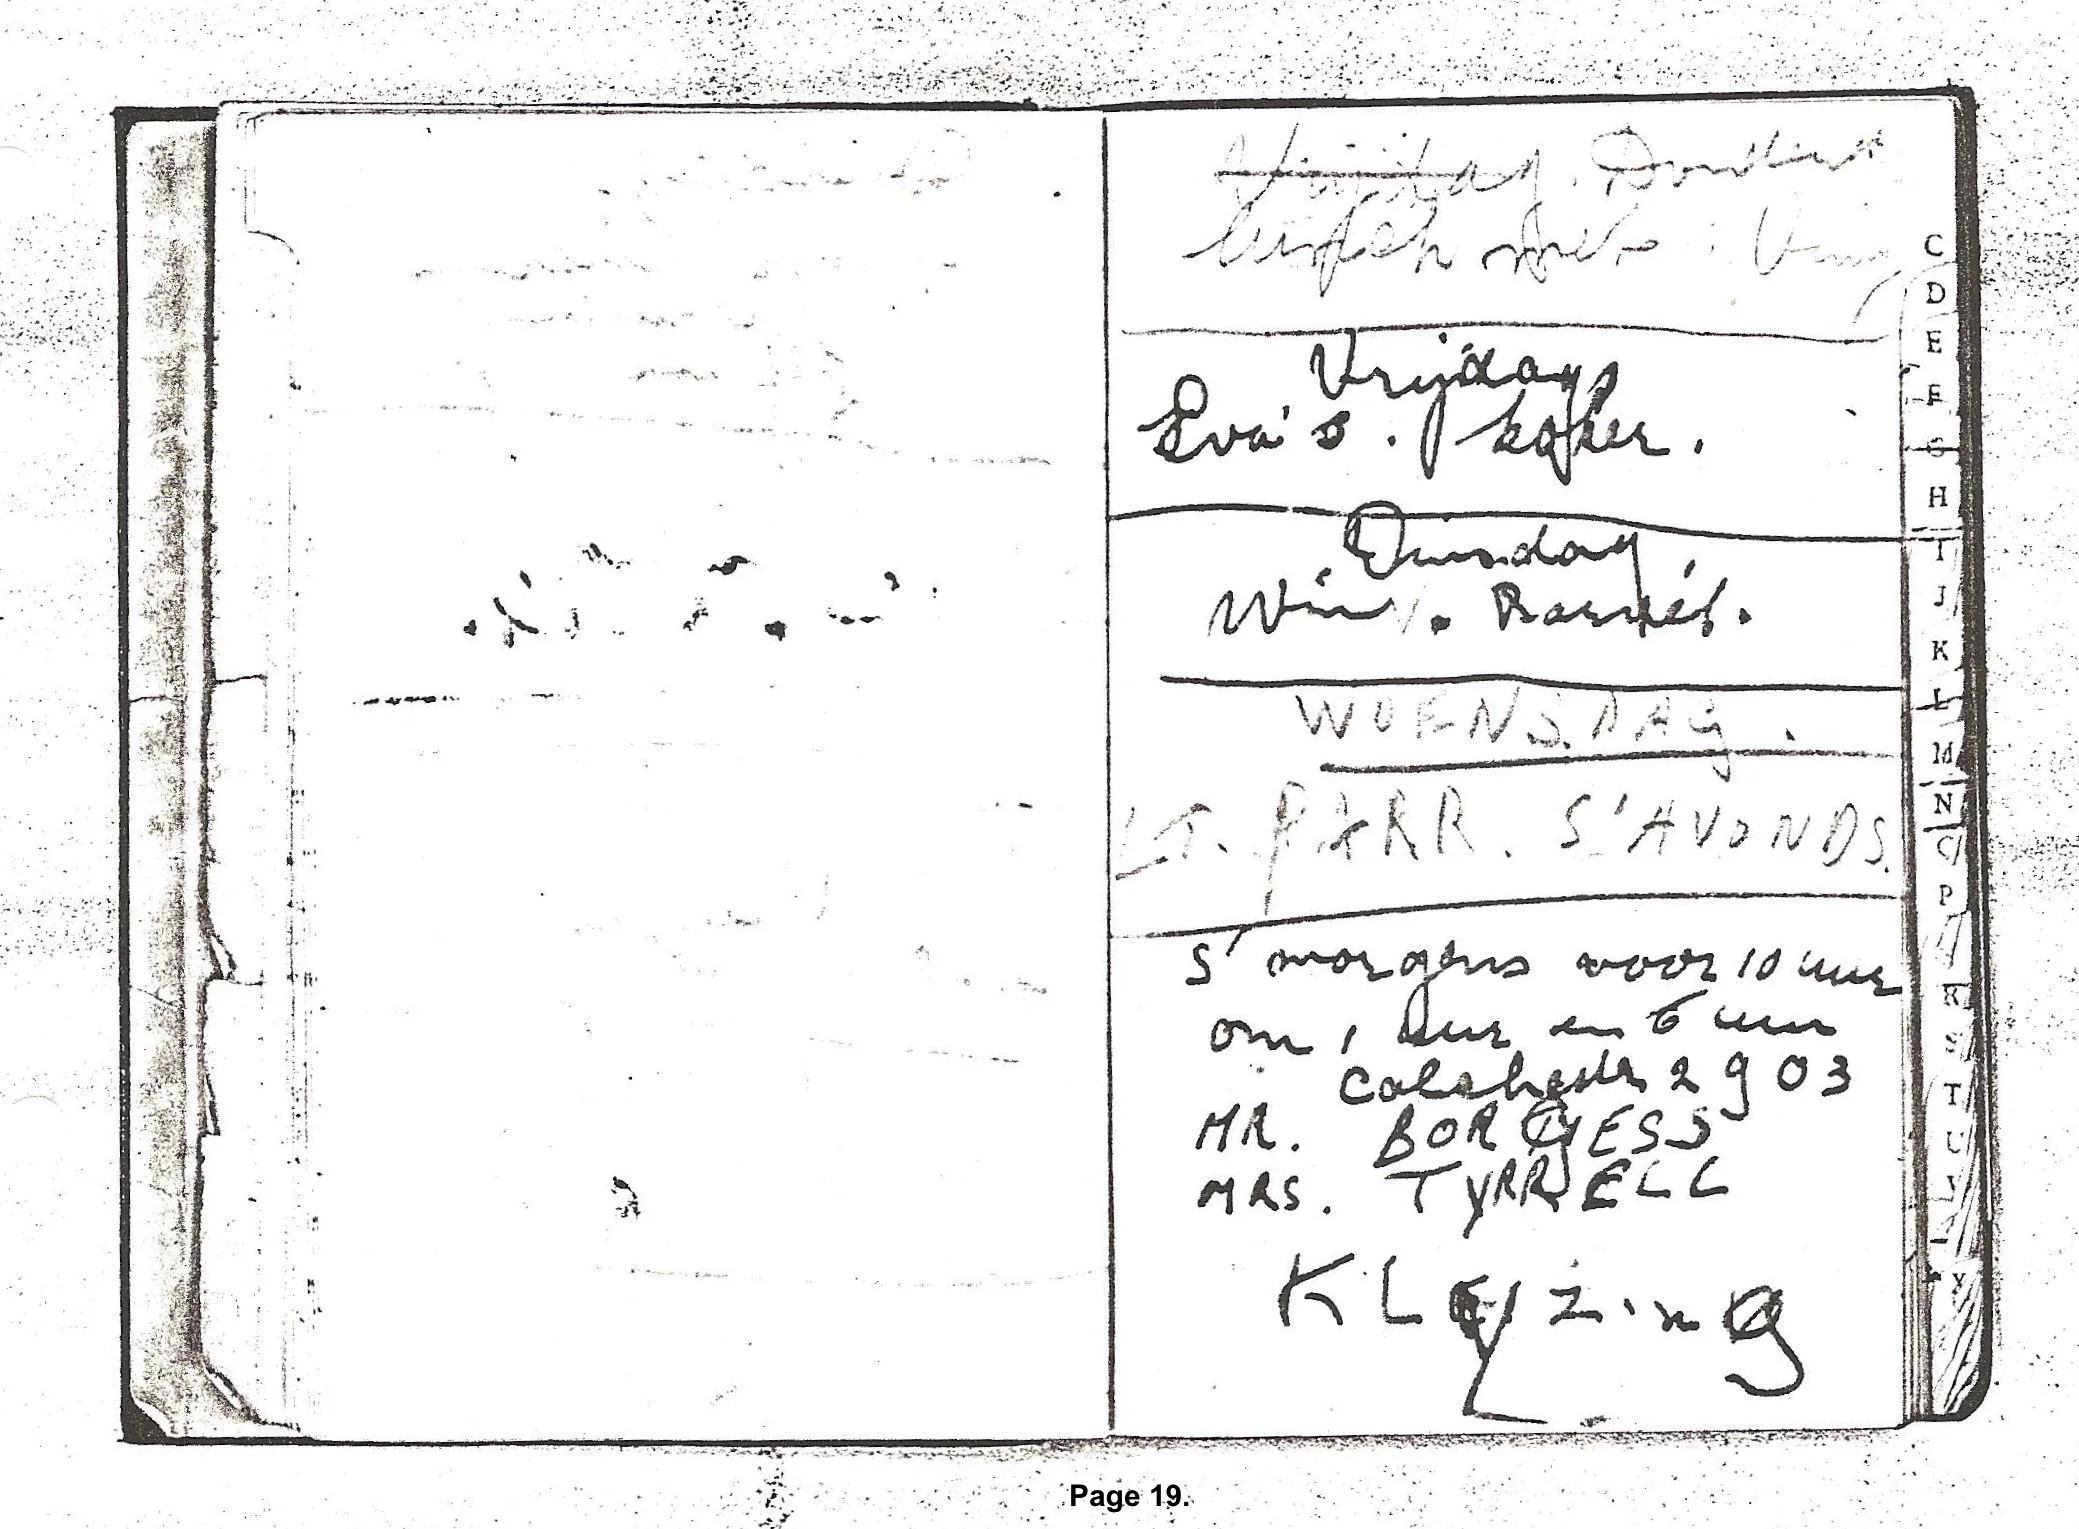 Vrijdag. Donder
lunch met
Vrijdag
Eva's. koker.
Dinsdag
Wim. Barnés.
WOENSDAG.
LT. PARR. S'AVONDS.
S' morgens voor 10 uur
om 1 uur en 6 uur
Colchester 2903
MR. BORGESS
MRS. TYRRELL
KLeyzing
C
D
E
F
G
H
I
J
K
L
M
N
O
P
R
S
T
U
V
Y
Page 19.